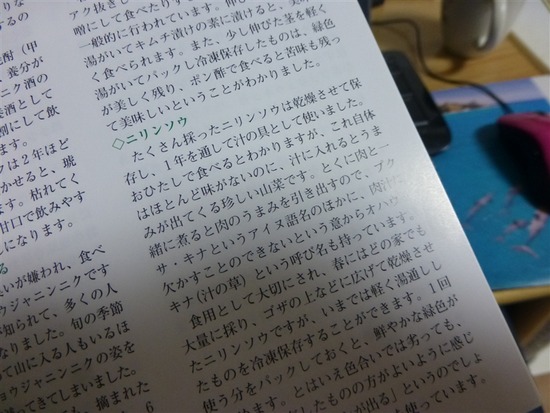 酎（甲
養分が
ニク酒の
養酒として
割にして飲
ます。
クは2年ほど
かせると、琥
ます。枯れてく
甘口で飲みやす
になります。
る
いが嫌われ、食べ
ウジャニンニクです
が知られて、多くの人
なりました。旬の季節
て山に入る人もいるほ
ョウジャニンニクの姿を
ってきてしまいました。
も、摘まれた
アク抜きし
噌にして食べたり
一般的に行われています。伸び
湯がいてキムチ漬けの茎に漬けると、美味
く食べられます。また、少し伸びた茎を軽く
湯がいてパックし冷凍保存したものは、緑色
が美しく残り、ポン酢で食べると苦味も残っ
て美味しいということがわかりました。
◇ニリンソウ
たくさん採ったニリンソウは乾燥させて保
存し、1年を通して汁の具として使いました。
おひたしで食べるとわかりますが、これ自体
はほとんど味がないのに、汁に入れるとうま
みが出てくる珍しい山菜です。とくに肉と一
緒に煮ると肉のうまみを引き出すので、アク
サ・キナというアイヌ語名のほかに、肉汁に
欠かすことのできないという意からオハウ
キナ（汁の草）という呼び名も持っています。
食用として大切にされ、春にはどの家でも
大量に採り、ゴザの上などに広げて乾燥させ
たニリンソウですが、いまでは軽く湯通しし
たものを冷凍保存することができます。1回
使う分をパックしておくと、鮮やかな緑色が
ます。とはいえ色合いでは劣っても、
したものの方がよいように感じ
が出る」というのでしょ
使っています。
6